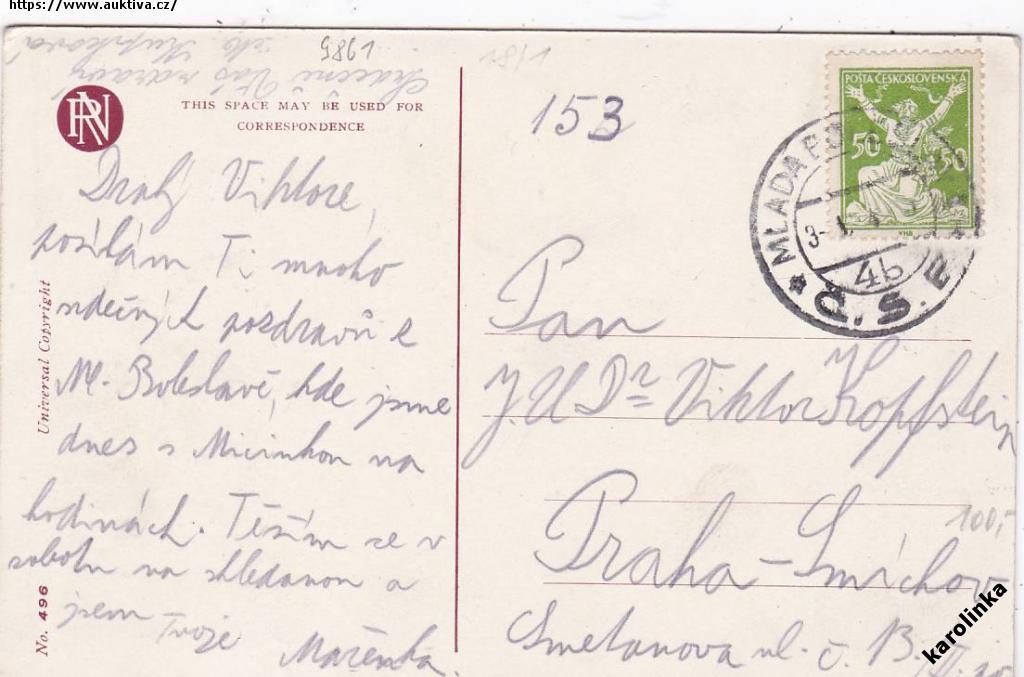 https://www.auktiva.cz/
Srdečně Vás zdraví
9861
RN
THIS SPACE MAY BE USED FOR
CORRESPONDENCE
153
POŠTA ČESKOSLOVENSKÁ
50 50
VHB
MLADÁ BO
4b
Č.S.
Drahý Viktore,
posílám Ti mnoho
srdečných pozdravů z
Ml. Boleslavě, kde jsme
dnes s Micinkou na
hodinách. Těším se v
sobotu na shledanou a
jsem Tvoje
Mařenka.
Universal Copyright
No. 496
Pan
J.U.Dr Viktor Kopfstein
Praha-Smíchov
Smetanova ul. č. 13.
100,-
karolinka